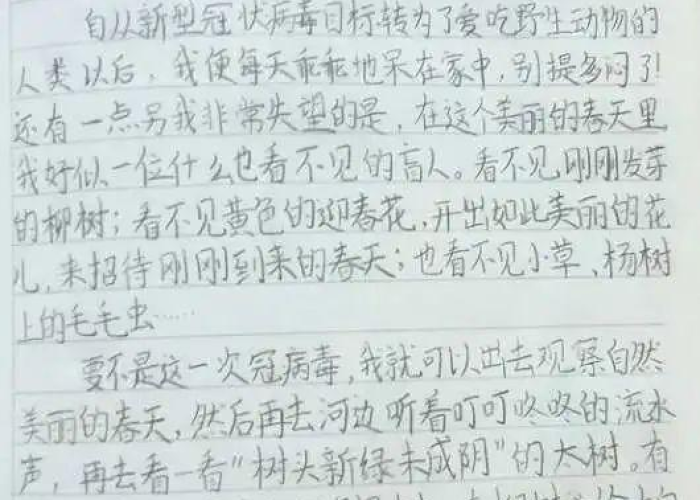 自从新型冠状病毒目标转为了爱吃野生动物的
人类以后，我便每天乖乖地呆在家中，别提多闷了！
还有一点另我非常失望的是，在这个美丽的春天里
我好似一位什么也看不见的盲人。看不见刚刚发芽
的柳树；看不见黄色的迎春花，开出如此美丽的花
儿，来招待刚刚到来的春天；也看不见小草、杨树
上的毛毛虫……
要不是这一次冠病毒，我就可以出去观察自然
美丽的春天，然后再去河边听着叮叮咚咚的流水
声，再去看一看“树头新绿未成阴”的大树。有